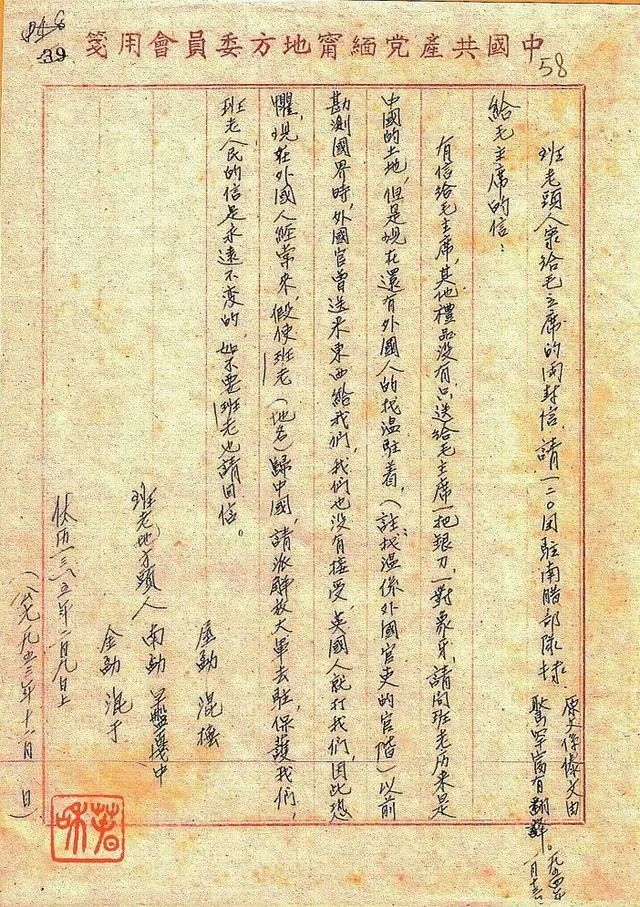 中國共產党緬甯地方委員會用箋
58
39
班老頭人寄給毛主席的兩封信，請一二〇団駐南腊部隊
原文係傣文由
翻譯。一九五四年
給毛主席的信：
有信給毛主席，其他禮品沒有只送給毛主席一把銀刀，一對象牙，請問班老历來是
中國的土地，但是現在還有外國人的找温駐着，（註：找温係外國官吏的官階）以前
勘測國界時，外國官曾送來東西給我們，我們也沒有接受，英國人就打我們，因此恐
懼，現在外國人經常來，假使班老（地名）歸中國，請派解放大軍去駐，保護我們，
班老人民的信是永遠不變的，如不要班老也請回信。
屋勐 混
班老地方頭人 南勐
金勐 混
五年一月九日上
月 日）